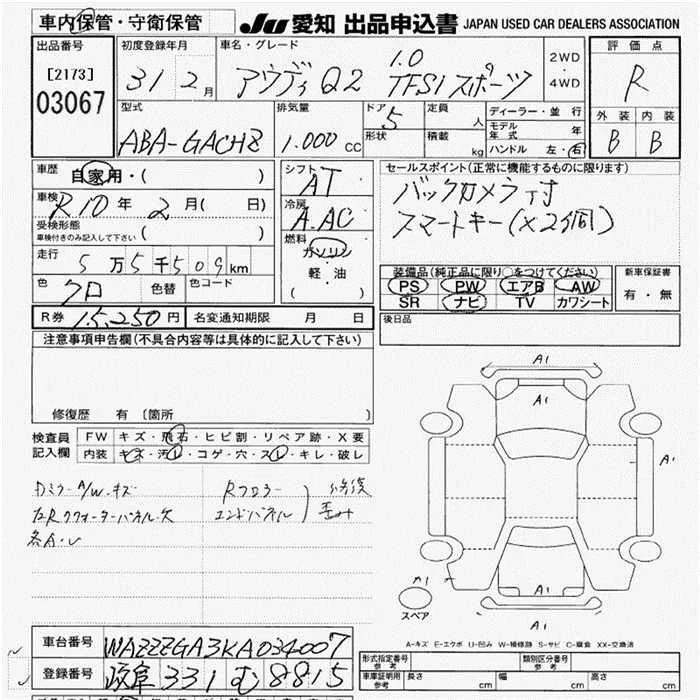 車内保管・守衛保管
JU愛知 出品申込書 JAPAN USED CAR DEALERS ASSOCIATION
出品番号
[2173]
03067
初度登録年月
31 2月
車名・グレード
アウディQ2 1.0 TFSIスポーツ
2WD・4WD
評価点
R
外装 内装
B B
型式
ABA-GACHZ
排気量
1.000 CC
ドア 5
形状
定員 人
積載 kg
ディーラー・並行
モデル年式 年
ハンドル 左・右
車歴
自家用・( )
車検
R10年 2月( 日)
受検形態
車検付きのみ記入して下さい ( )
走行
5万5千509km
色
クロ
色替
色コード
シフト
AT
冷房
A.AC
燃料
ガソリン
軽・油
( )
セールスポイント(正常に機能するものに限ります)
バックカメラ付
スマートキー(×2個)
装備品(純正品に限り○をつけてください)
PS PW エアB AW
SR ナビ TV カワシート
新車保証書
有・無
R券 15,250円 名変通知期限 月 日
後日品
注意事項申告欄(不具合内容等は具体的に記入して下さい)
修復歴 有 〔箇所 〕
検査員記入欄
FW キズ・飛石・ヒビ割・リペア跡・X要
内装 キズ・汚レ・コゲ・穴・スレ・キレ・破レ
A/W キズ
Rフロアー
エンドパネル
A1
A1
A1
A1
A1
A1
スペア
A-キズ E-エクボ U-凹み W-補修跡 S-サビ C-腐食 XX-交換済
車台番号 WAZZZGA3KA034007
登録番号 岐阜 331 む 8815
形式指定番号 参考
類別区分番号 参考
車庫証明用参考 長さ cm 幅 cm 高さ cm